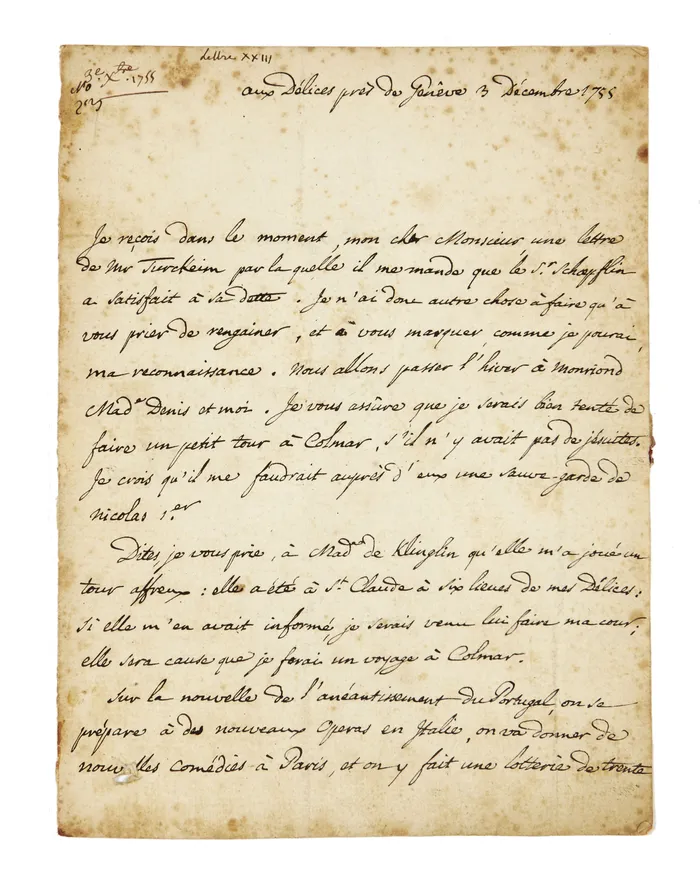 Lettre XXIII
3e. Xbre. 1755
No
aux Délices près de Genêve 3 Décembre 1755
Je reçois dans le moment, mon cher Monsieur une lettre
de Mr Turckeim par laquelle il me mande que le Sr. Schœpflin
a satisfait à sa dette. Je n'ai donc autre chose à faire qu'à
vous prier de rengainer, et à vous marquer comme je pourai
ma reconnaissance. Nous allons passer l'hiver à monriond
Made Denis et moi. Je vous assûre que je serais bien tenté de
faire un petit tour à Colmar, s'il n'y avait pas de jésuites.
Je crois qu'il me faudrait auprès d'eux une sauve-garde de
nicolas 1.er
Dites je vous prie, à Mad. de Klinglin qu'elle m'a joué un
tour affreux : elle a été à St Claude à six lieues de mes Délices ;
si elle m'en avait informé, je serais venu lui faire ma cour ;
elle sera cause que je ferai un voyage à Colmar.
Sur la nouvelle de l'anéantissement du Portugal, on se
prépare à des nouveaux Operas en Italie, on va donner de
nouvelles comédies à Paris, et on y fait une lotterie de trente